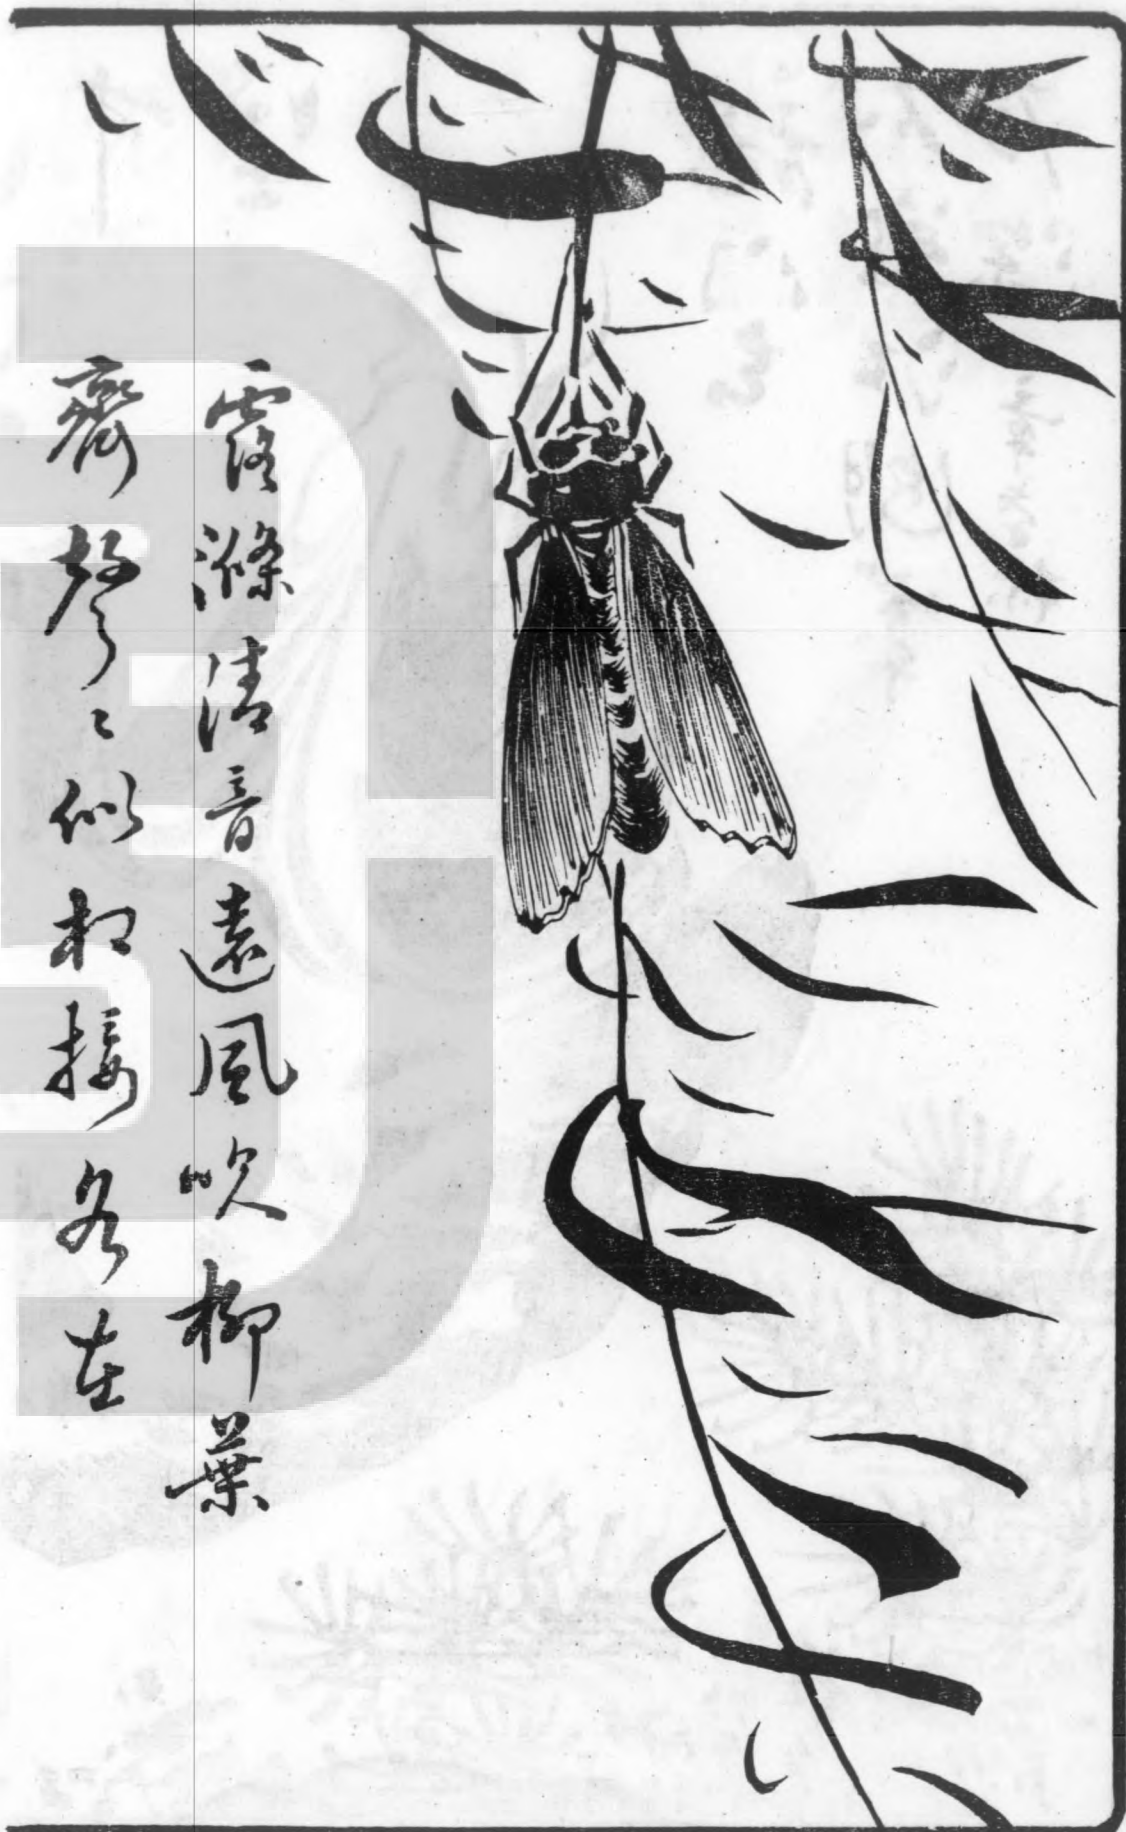 露滌清音遠風吹柳葉
齊聲〻似相接各在